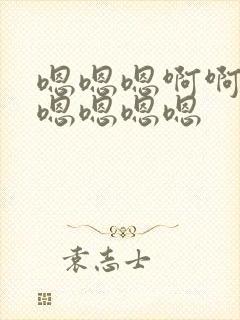 嗯嗯嗯啊啊
嗯嗯嗯嗯
袁志士